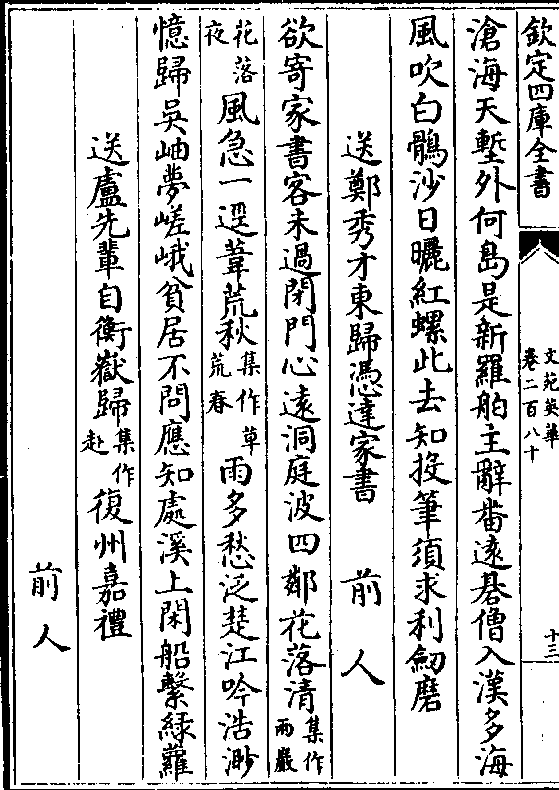 欽定四庫全書
文苑英華
卷二百八十
十三
滄海天塹外何島是新羅舶主辭畨逺碁僧入漢多海
風吹白鶴沙日曬紅螺此去知投筆須求利劎磨
送鄭秀才東歸憑達家書 前人
欲寄家書客未過閉門心逺洞庭波四鄰花落清集作雨巖
花落夜風急一逕葦荒秋集作草荒春雨多愁泛楚江吟浩渺
憶歸吳岫夢嵯峩貧居不問應知處溪上閑船繫緑蘿
送盧先輩自衡嶽歸集作赴復州嘉禮
前人